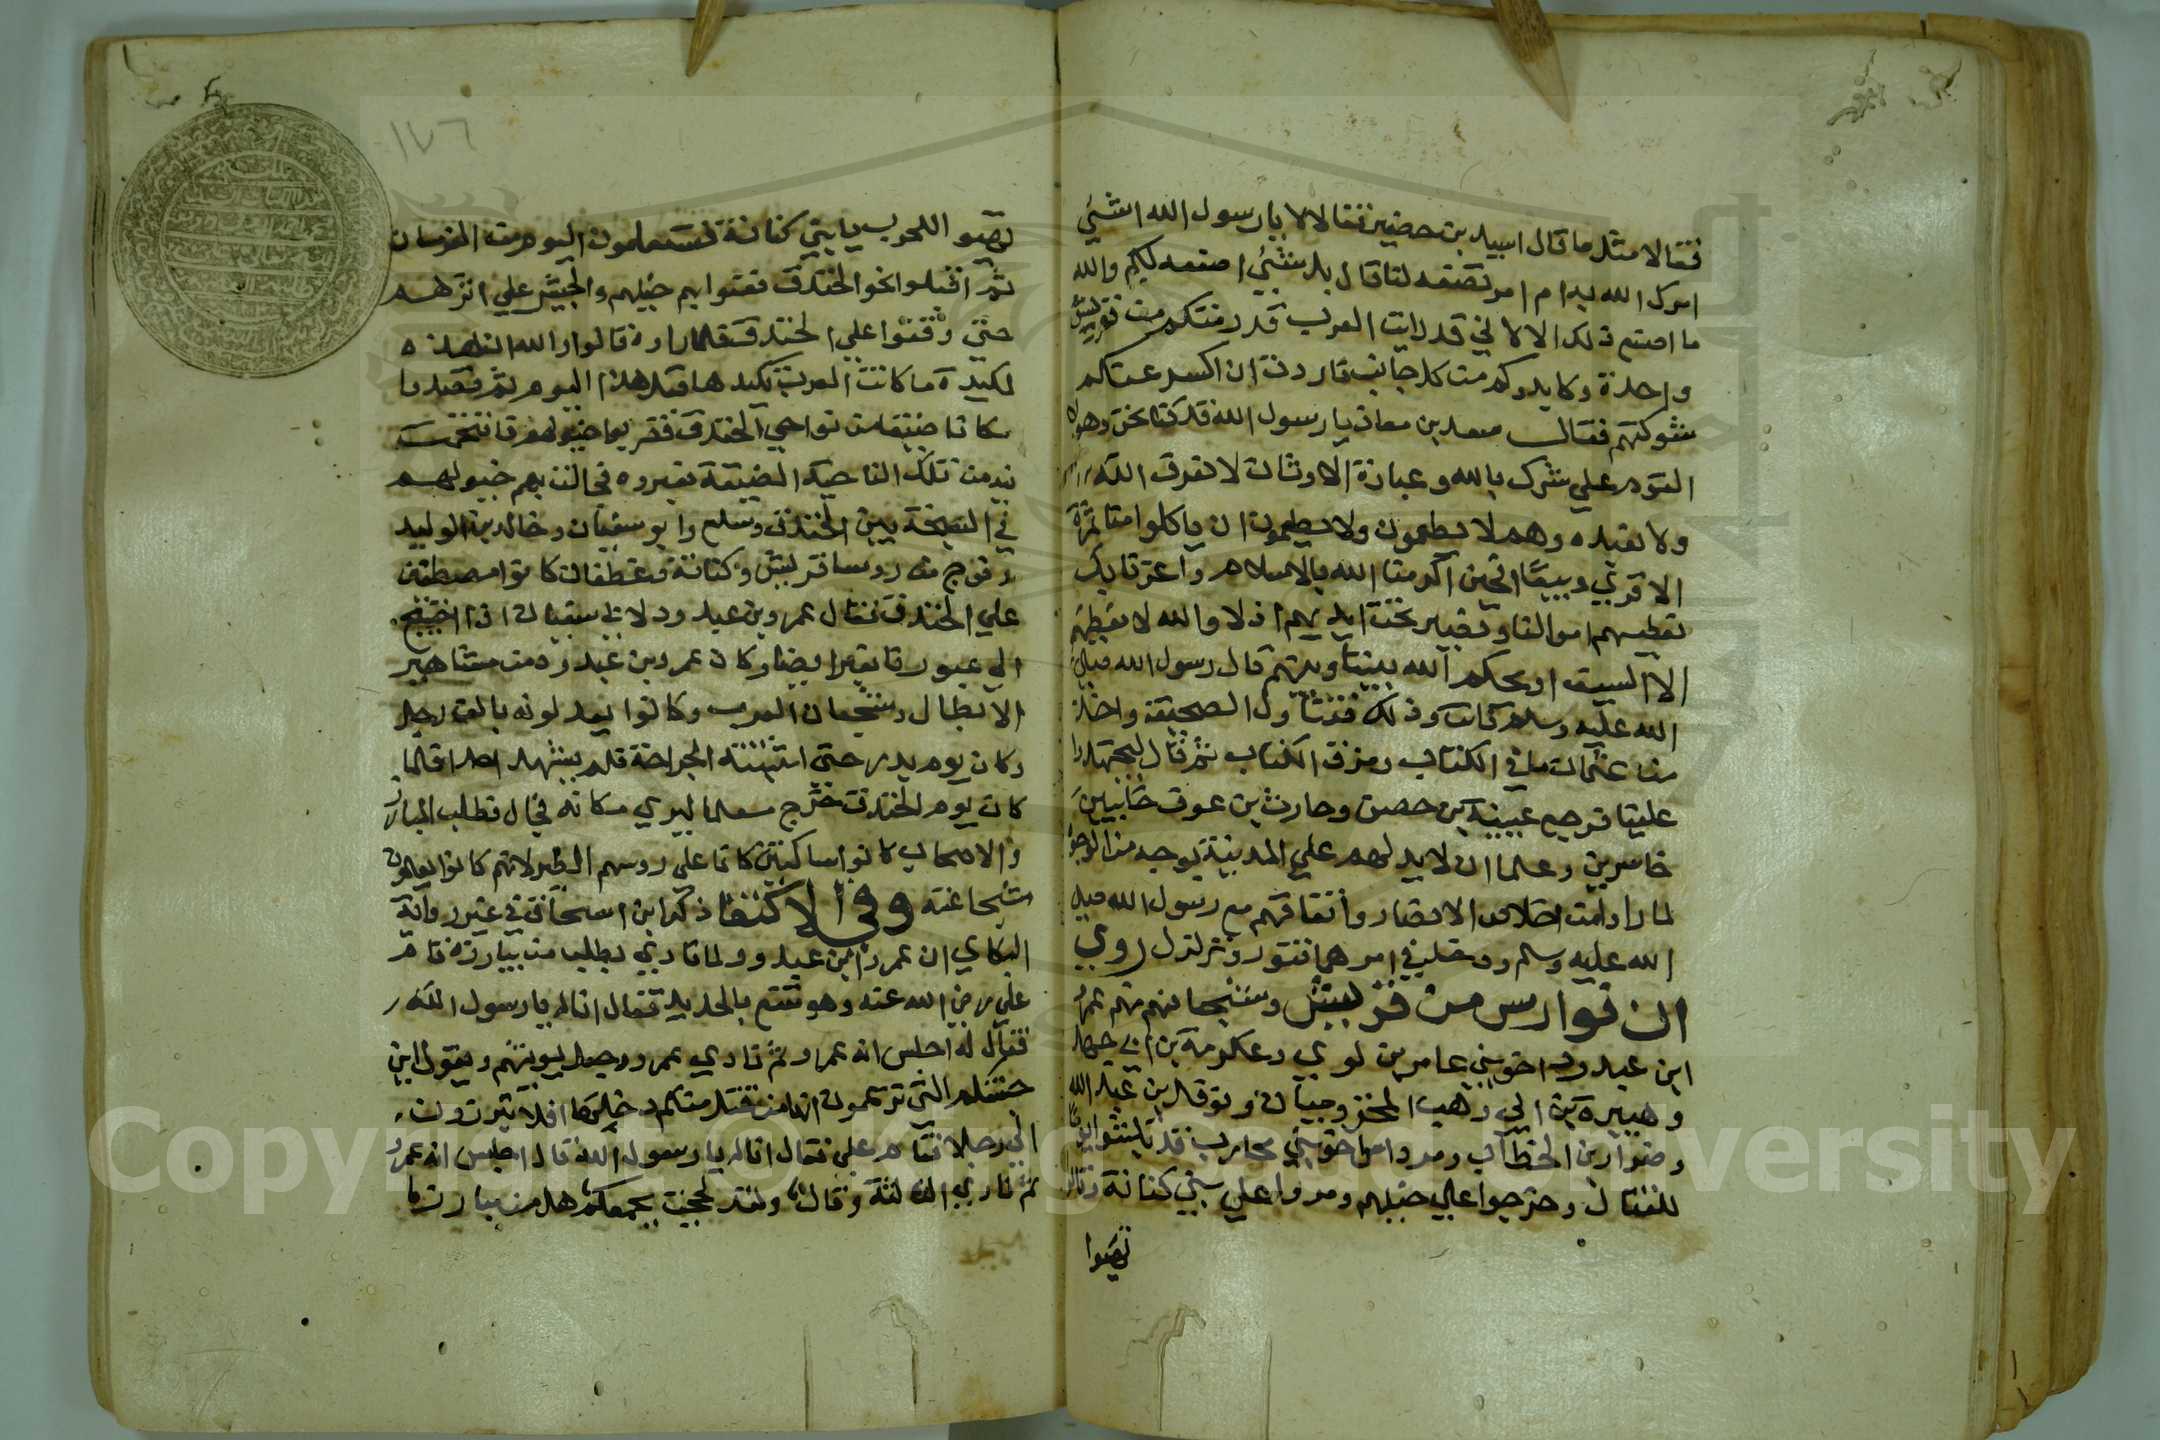 فقالا مثل ما قال اسيد بن حضير فقالا لا يا رسول الله اشيئ
امرك الله به ام امر تصنعه لنا قال بل شيئ اصنعه لكم والله
ما اصنع ذلك الا لاني قد رايت العرب قد رمتكم من قوس
واحدة وكابدوكم من كل جانب فاردت ان اكسر عنكم
شوكتهم فقال سعد بن معاذ يا رسول الله قد كنا نحن وهولا
القوم علي شرك بالله وعبادة الاوثان لا نعرف الله
ولا نعبده وهم لا يطمعون ان ياكلوا منا تمرة
الا قري وبيعا افحين اكرمنا الله بالاسلام واعزنا بك
نعطيهم اموالنا ونصير تحت ايديهم اذ لا والله لا نعطيهم
الا السيف او يحكم الله بيننا وبينهم قال رسول الله صلي
الله عليه وسلم فانت وذلك فتناول الصحيفة واخذ
ما في الكتاب ومزق الكتاب ثم قال ليجتهدوا
علينا فرجع عيينة بن حصن وحارث بن عوف خايبين
خاسرين وعلما ان لا يد لهم علي المدينة بوجه من الوجوه
لما راوا من الانصار واتفاقهم مع رسول الله صلي
الله عليه وسلم ودخل في امرهما فتور وتزلزل روي
ان فوارس من قريش وشجعانهم منهم عمرو
ابن عبد ود اخو بني عامر بن لوي وعكرمة بن ابي جهل
وهبيرة بن ابي وهب المخزوميان ونوفل بن عبد الله
وضرار بن الخطاب ومرداس اخو بني محارب قد تلبسوا
للقتال وخرجوا علي خيلهم ومروا علي بني كنانة وقالوا
تهيوا
١٧٦
تهيوا للحرب يا بني كنانة فستعلمون اليوم من الفرسان
ثم اقبلوا نحو الخندق تعنوا بهم خيلهم والجيش علي اثرهم
حتي وقفوا علي الخندق فلما راوه قالوا والله ان هذه
لمكيدة ما كانت العرب تكيدها قبل هذا اليوم ثم قصدوا
مكانا ضيقا من نواحي الخندق فضربوا خيولهم فاقتحمت
من تلك الناحية الضيقة فعبروه فجالت بهم خيولهم
في السبخة بين الخندق وسلع وابو سفيان وخالد بن الوليد
وفوج من روسا قريش وكنانة وغطفان كانوا مصطفين
علي الخندق فقال عمرو بن عبد ود لابي سفيان اذا احتيج
الي عبور فاعبر ايضا وكان عمرو بن عبد ود من مشاهير
الابطال وشجعان العرب وكانوا يعدلونه بالف رجل
وكان يوم بدر حتي اثبتته الجراحة فلم يشهد احدا فلما
كان يوم الخندق خرج معلما ليري مكانه فجال وطلب المبارز
والاصحاب كانوا ساكتين كانما علي روسهم الطير لانهم كانوا يعلمون
شجاعته وفي الاكتفا ذكر ابن اسحاق في غير رواية
البكاي ان عمرو ابن عبد ود لما نادي بطلب من يبارزه قام
علي رضي الله عنه وهو مقنع بالحديد فقال انا له يا رسول الله
فقال له اجلس انه عمرو ثم نادي عمرو وجعل يوبخهم ويقول اين
جنتكم التي تزعمون انه من قتل منكم دخلها افلا تبرزون
الي رجلا فقام علي فقال انا له يا رسول الله قال اجلس انه عمرو
ثم نادي الثالثة وقال ولقد بححت بجمعكم هل من مبارز
Copyright © King Saud University